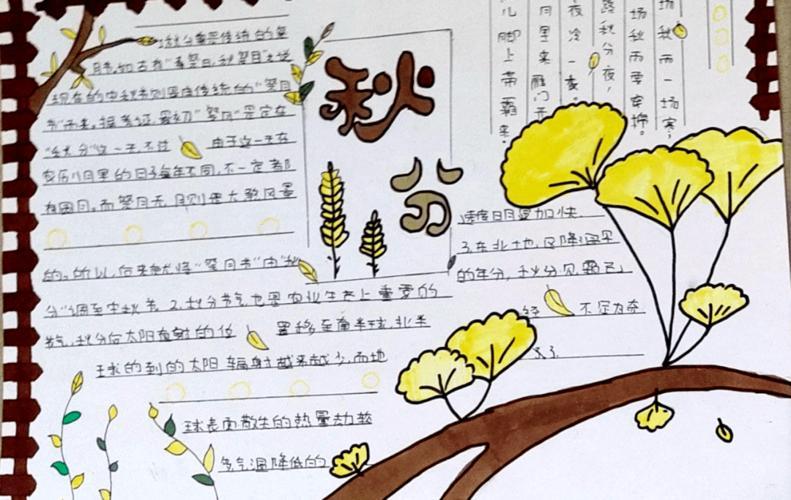 秋分
秋分曾是传统的祭
月节,如古有“春祭日,秋祭月”之说
现在的中秋节则是由传统的“祭月
节”而来。据考证,最初“祭月”是定在
“秋分”这一天,不过 由于这一天在
农历八月里的日子每年不同,不一定都
有圆月。而祭月无月则是大煞风景
的。所以,后来就将“祭月节”由“秋
分”调至中秋节 2.秋分节气也是农业生产上重要的
节气,秋分后太阳直射的位 置移至南半球,北半
球的到的太阳 辐射越来越少,而地
球表面散失的热量却较
多气温降低的
速度明显加快.
3.在北地,
的年分,秋分见霜已
经 不足为奇
了.
场秋雨一场寒;
场秋雨要穿棉。
路秋分夜,
夜冷一夜。
月里来雁门开
儿脚上带霜来。